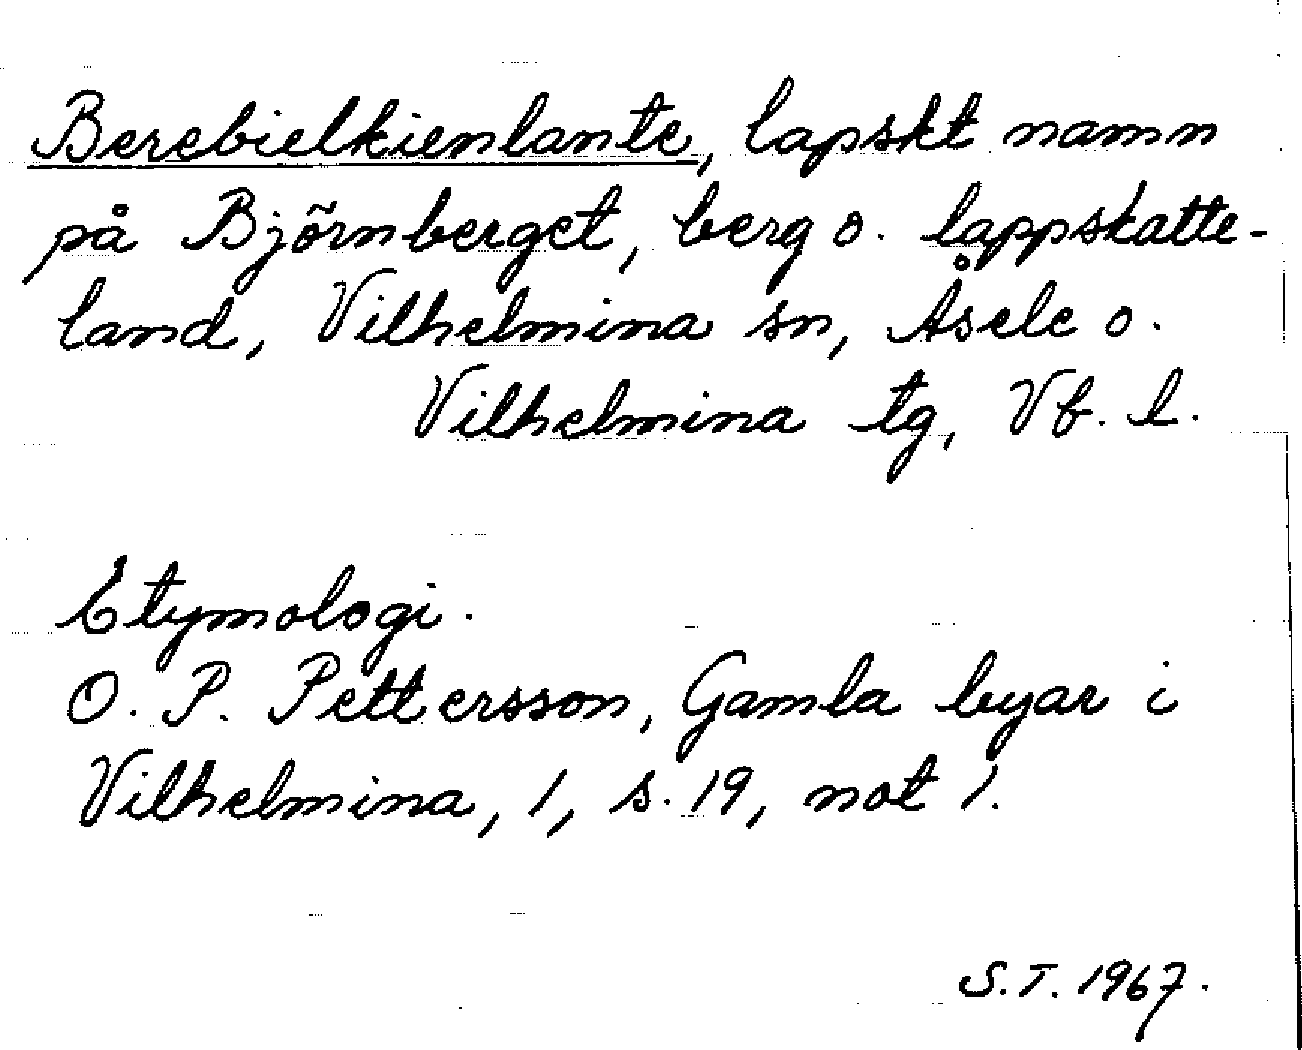 Berebielkienlante, lapskt namn
på Björnberget, berg o. lappskatte-
land, Vilhelmina sn, Åsele o.
Vilhelmina tg, Vb. l.
Etymologi.
O. P. Pettersson, Gamla byar i
Vilhelmina, 1, s. 19, not 1.
S.T. 1967.